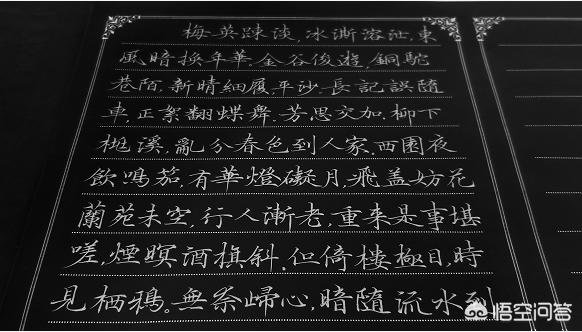 梅英踈淡，冰澌溶泄，東
風暗換年華，金谷俊遊，銅駝
巷陌，新晴細履平沙，長記誤隨
車，正絮翻蝶舞，芳思交加，柳下
桃溪，亂分春色到人家，西園夜
飲鳴笳，有華燈礙月，飛盖妨花
蘭苑未空，行人漸老，重來是事堪
嗟，煙暝酒旗斜，但倚樓極目，時
見栖鴉，無奈歸心，暗隨流水到
悟空问答